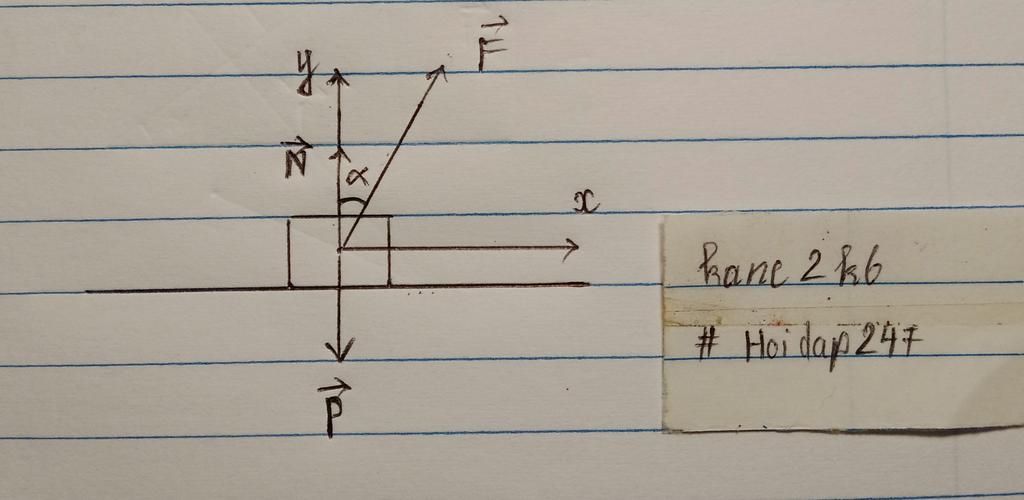 F
y
N
α
x
P
kane 2k6
# Hoidap247